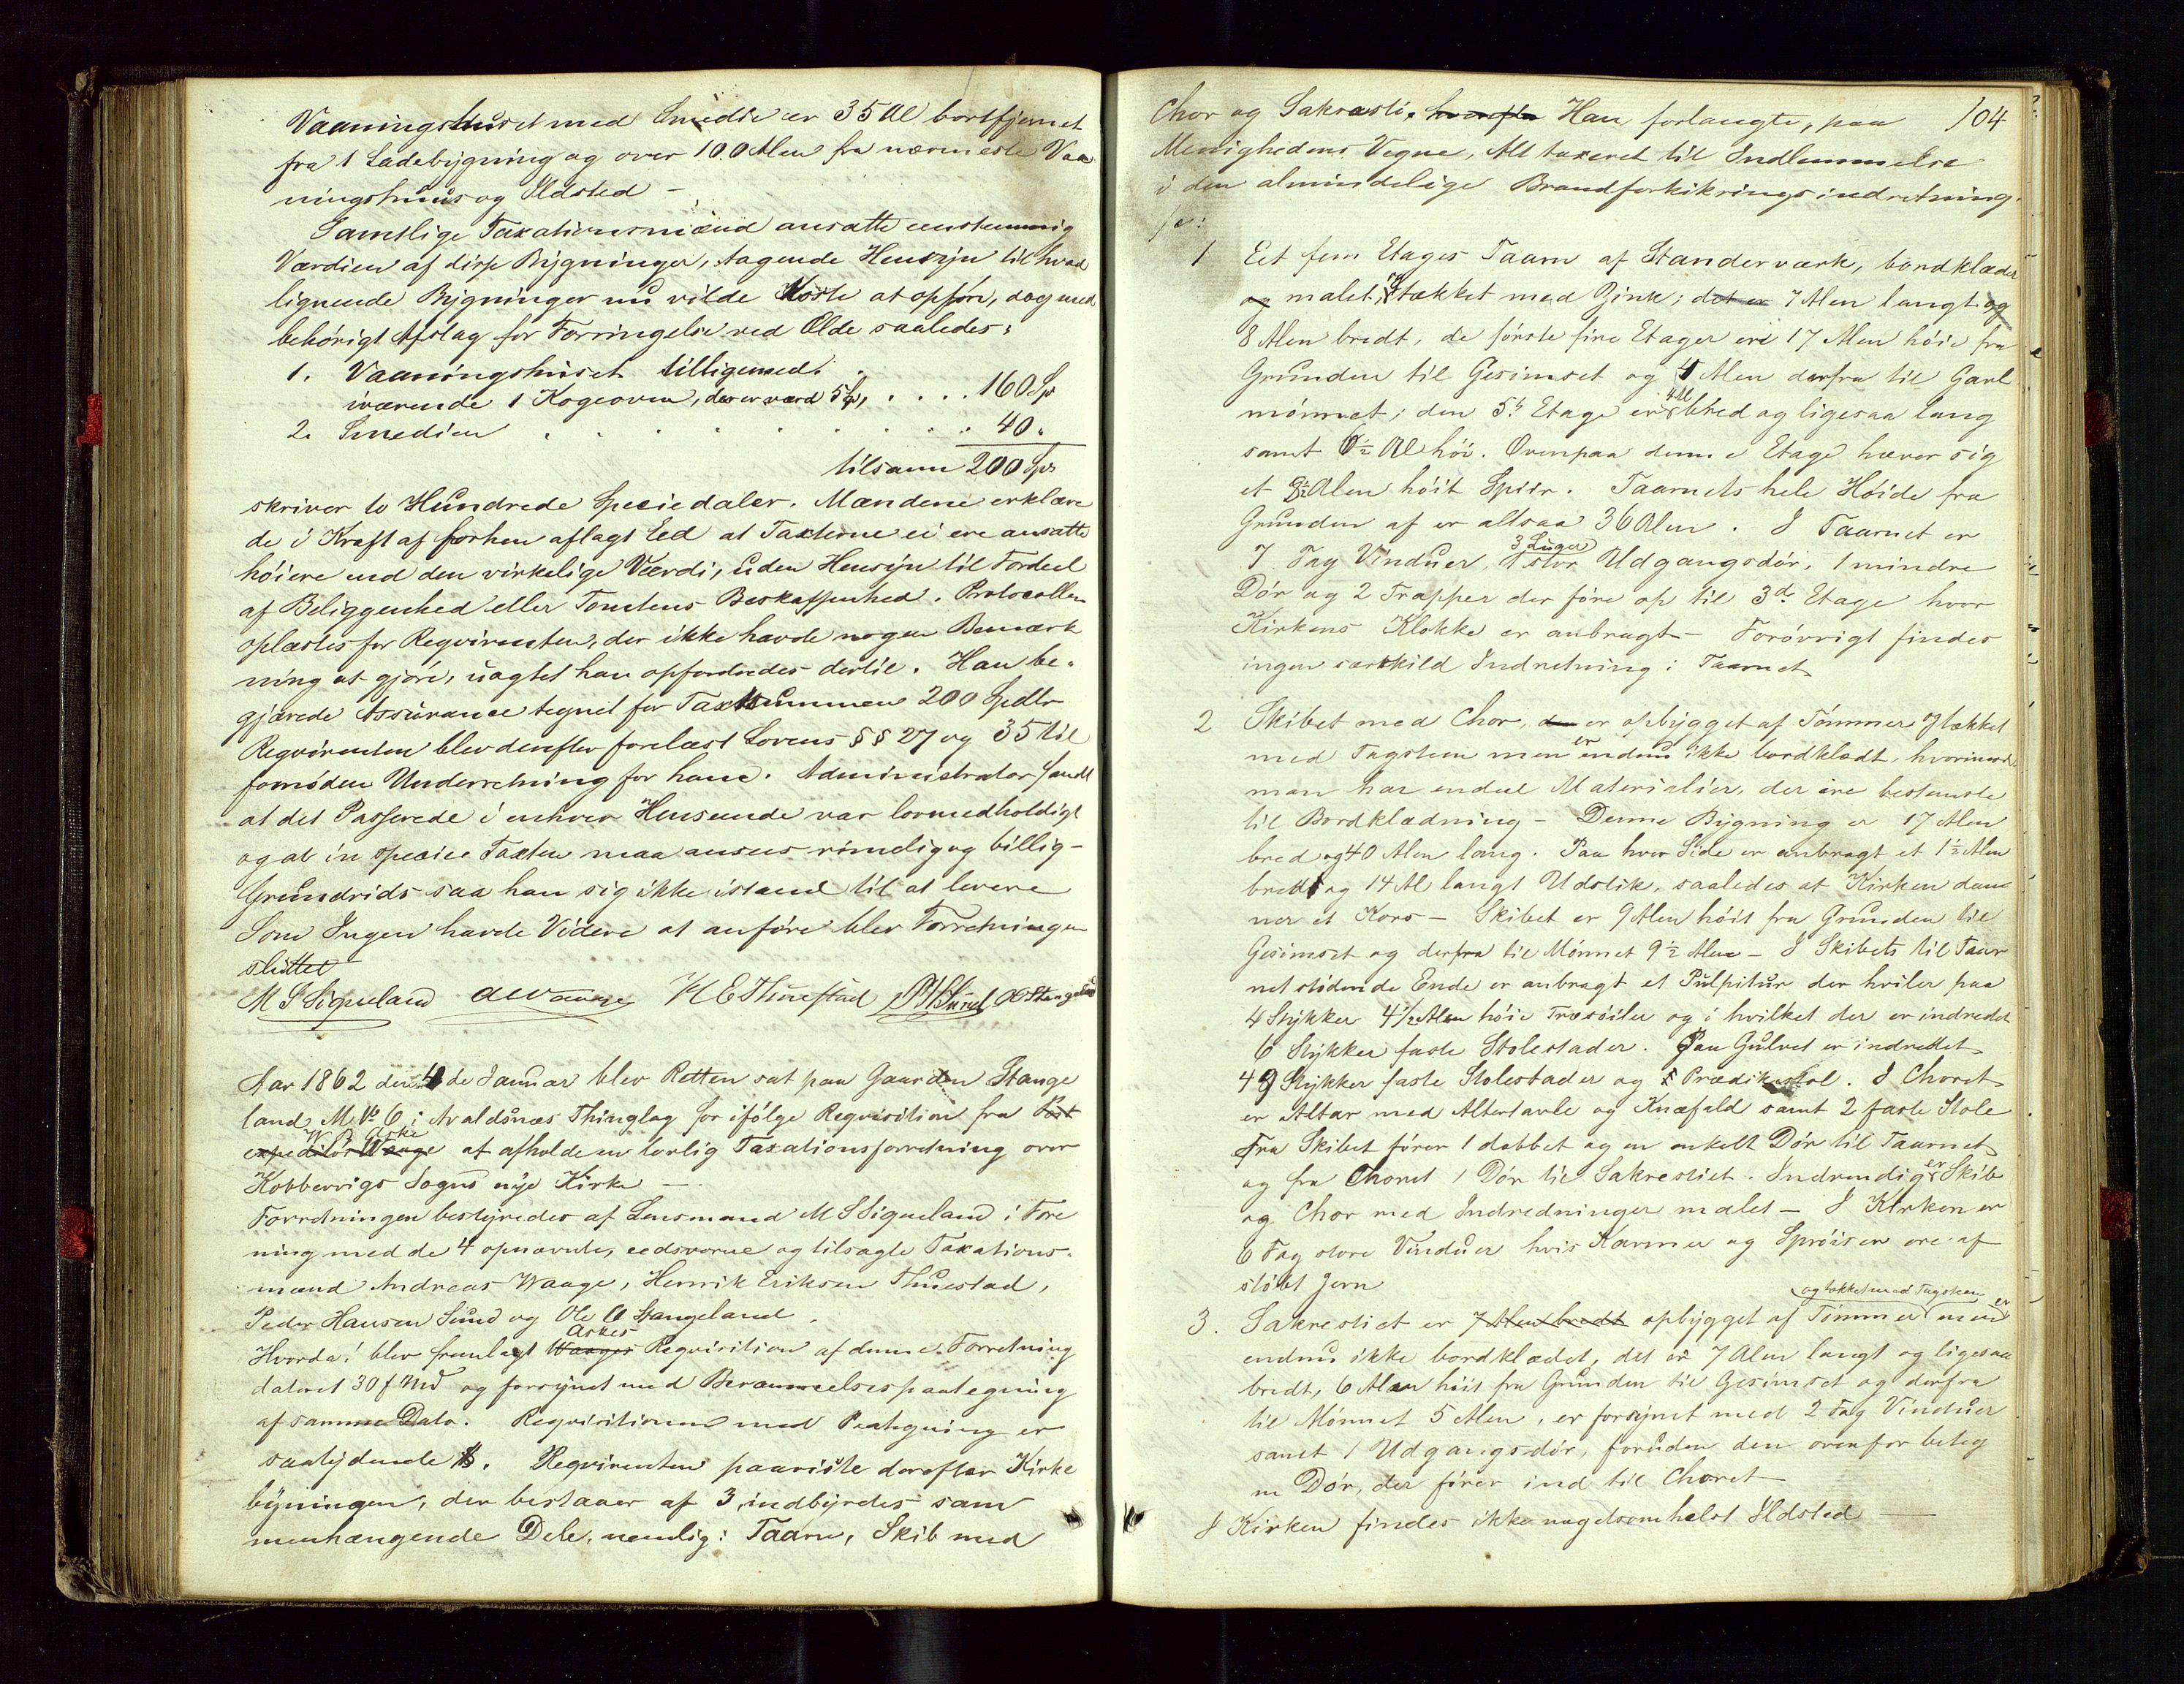 Vaaningshuset med Smedie er 35 Al bortfjernet
fra 1 Ladebygning og over 100 Alen fra nærmeste Vaa
ningshuus og Ildsted –
Samtlige Taxationsmænd ansatte eenstemmig
Værdien af disse Bygninger, tagende Hensyn til hvad
lignende Bygninger nu vilde Koste at opføre, dog med
behørigt Afslag for Forringelse ved Ælde saaledes:
1. Vaaningshuset tilligemed
værende 1 Kogeoven, der er værd 5 Sp, . . . . 160 Sp
2. Smedien . . . . . . . . 40 "
tilsamn 200 Sp
skriver to Hundrede Speciedaler. Mændene erklære
de i Kraft af forhen aflagt Eed at Taxterne ei ere ansatte
høiere end den virkelige Værdi, uden Hensyn til Fordeel
af Beliggenhed eller Tomtens Beskaffenhed. Protocollen
oplæstes for Reqvirenten, der ikke havde nogen Bemærk
ning at gjøre, uagtet han opfordredes dertil. Han be-
gjærede Assurance tegnet for Taxtsummen 200 Spdlr
Reqvirenten blev derefter forelæst Lovens §§ 27 og 35 til
fornøden Underretning for ham. Administrator fandt
at det Passerede i enhver Henseende var lovmedholdigt
og at in specie Taxten maa ansees rimelig og billig –
Grundrids saa han sig ikke istand til at levere
Som Ingen havde Videre at anføre blev Forretningen
sluttet
M S Siqueland AWaage H E Thuestad P H Sund O O Stangeland
Aar 1862 den 4de Januar blev Retten sat paa Gaarden Stange
land M. No 6 i Avaldsnæs Thinglag for ifølge Reqvisition fra Post
W. D. Aske
expeditør Waage at afholde en lovlig Taxationsforretning over
Kobbervigs Sogns nye Kirke –
Forretningen bestyredes af Lensmand M S Siqueland i Fore
ning med de 4 opnævnte, eedsvorne og tilsagte Taxations-
mænd Andreas Waage, Henrik Eriksen Thuestad,
Peder Hansen Sund og Ole O Stangeland.
Askes
Hvorda! blev fremlagt Waages Reqvisition af denne Forretning
dateret 30 f Md og forsynet med Berammelsespaategning
af samme Dato. Reqvisitionen med Paategning er
saalydende. Reqvirenten paaviste derefter Kirke
bygningen, der bestaaer af 3 indbyrdes sam
menhængende Dele, nemlig: Taarn, Skib med
104
Chor og Sakræsti. hvorefter Han forlangte, paa
Menighedens Vegne, Alt taxeret til Indlemmelse
i den almindelige Brandforsikringsindretning.
1 Eet fem Etages Taarn af Standerværk, bordklædt
og malet, tækket med Zink; det er 7 Alen langt og
8 Alen bredt, de første fire Etager ere 17 Alen høie fra
Grunden til Gesimset og 4 Alen derfra til Gavl
4 Al
mønnet; den 5te Etage er bred og ligesaa lang
samt 6½ Al høi. Ovenpaa denne Etage hæver sig
et 8½ Alen høit Spiir. Taarnets hele Høide fra
Grunden af er altsaa 36 Alen. I Taarnet er
3 Luger
7 Fag Vinduer, 1 stor Udgangsdør, 1 mindre
Dør og 2 Trapper der føre op til 3de Etage hvor
Kirkens Klokke er anbragt – Forøvrigt findes
ingen særskild Indretning i Taarnet
2 Skibet med Chor, er opbygget af Tømmer og tækket
er
med Tagsteen men endnu ikke bordklædt, hvorimod
man har endeel Materialier, der ere bestemte
til Bordklædning – Denne Bygning er 17 Alen
bred og 40 Alen lang. Paa hver Side er anbragt et 1½ Alen
bredt og 14 Al langt Udstik, saaledes at Kirken dan
ner et Kors – Skibet er 9 Alen høit fra Grunden til
Gesimset og derfra til Mønnet 9½ Alen – I Skibets til Taar
net stødende Ende er anbragt et Pulpitur der hviler paa
4 Stykker 4½ Alen høie Træsøiler og i hvilket der er indredet
6 Stykker faste Stolestader. Paa Gulvet er indrettet
49 Stykker faste Stolestader og 1 Prædikestol. I Choret
er Alter med Altertavle og Knæfald samt 2 faste Stole
Fra Skibet fører 1 dobbet og en enkelt Dør til Taarnet
er
og fra Choret 1 Dør til Sakrestiet. Indvendig Skib
og Chor med Indredninger malet – I Kirken er
6 Fag store Vinduer hvis Karmer og Sprøiser ere af
støbt Jern
og tækket med Tagsteen er
3. Sakrestiet er 7 Alen bredt opbygget af Tømmer men
endnu ikke bordklædet, det er 7 Alen langt og ligesaa
bredt, 6 Alen høit fra Grunden til Gesimset og derfra
til Mønnet 5 Alen, er forsynet med 2 Fag Vinduer
samt 1 Udgangsdør, foruden den ovenfor belig
ne Dør, der fører ind til Choret
I Kirken findes ikke nogetsomhelst Ildsted –